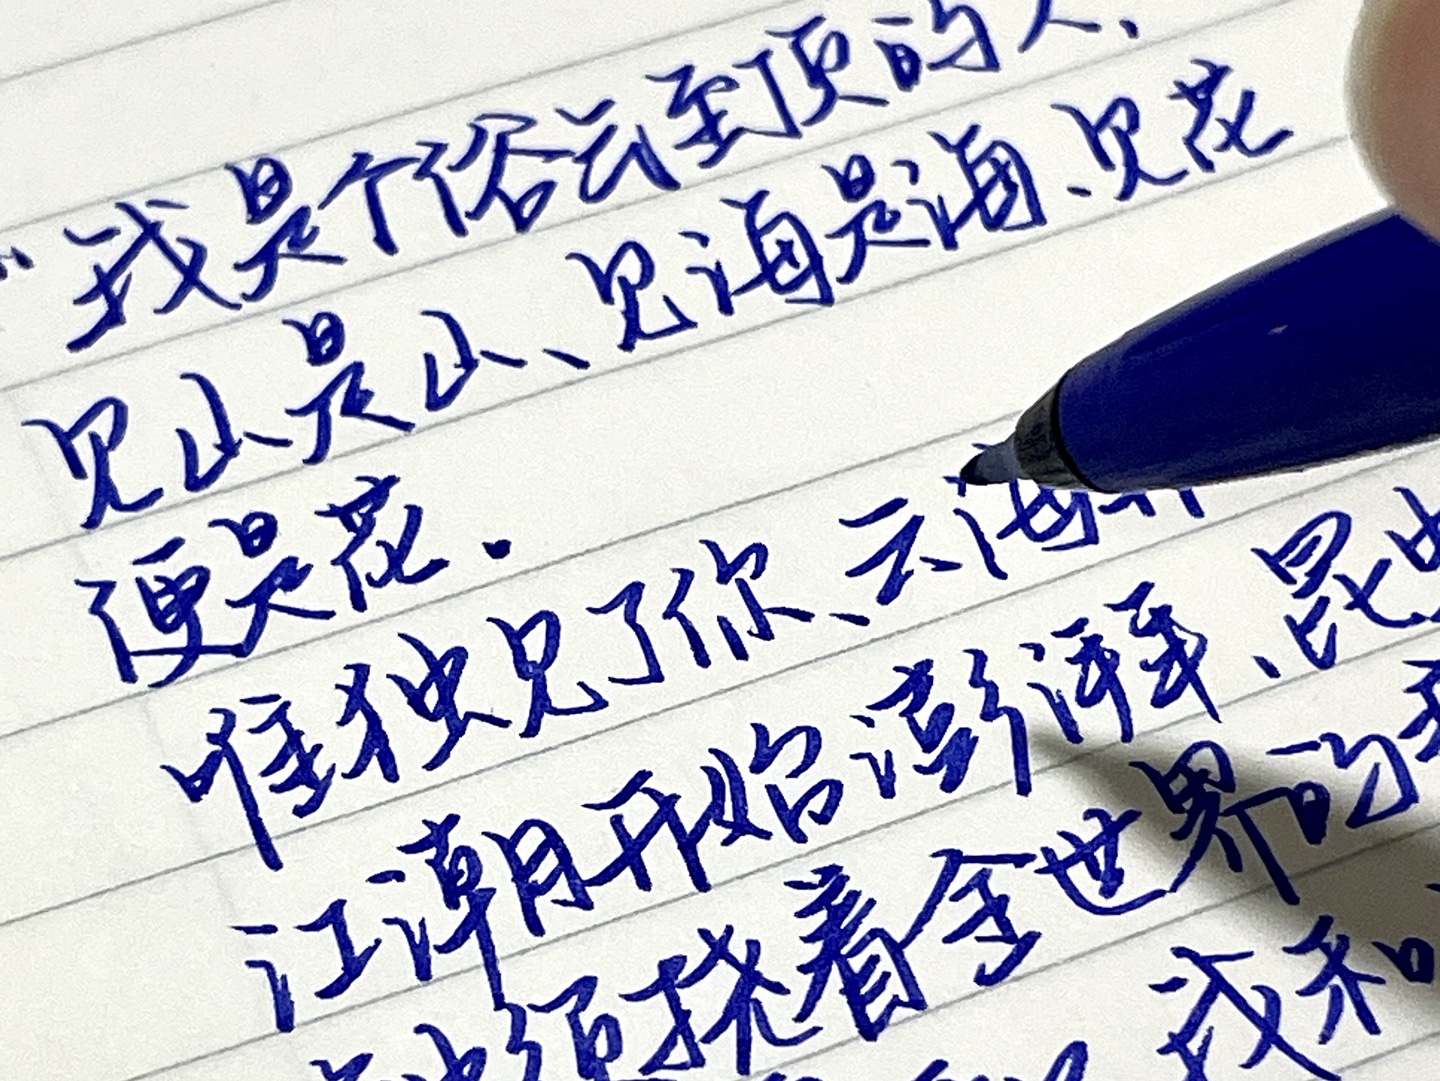 “我是个俗云至顶的人、
见山是山、见海是海、见花
便是花.
唯独见了你、云海开
江潮开始澎湃、昆虫
须挠着全世界的
我和